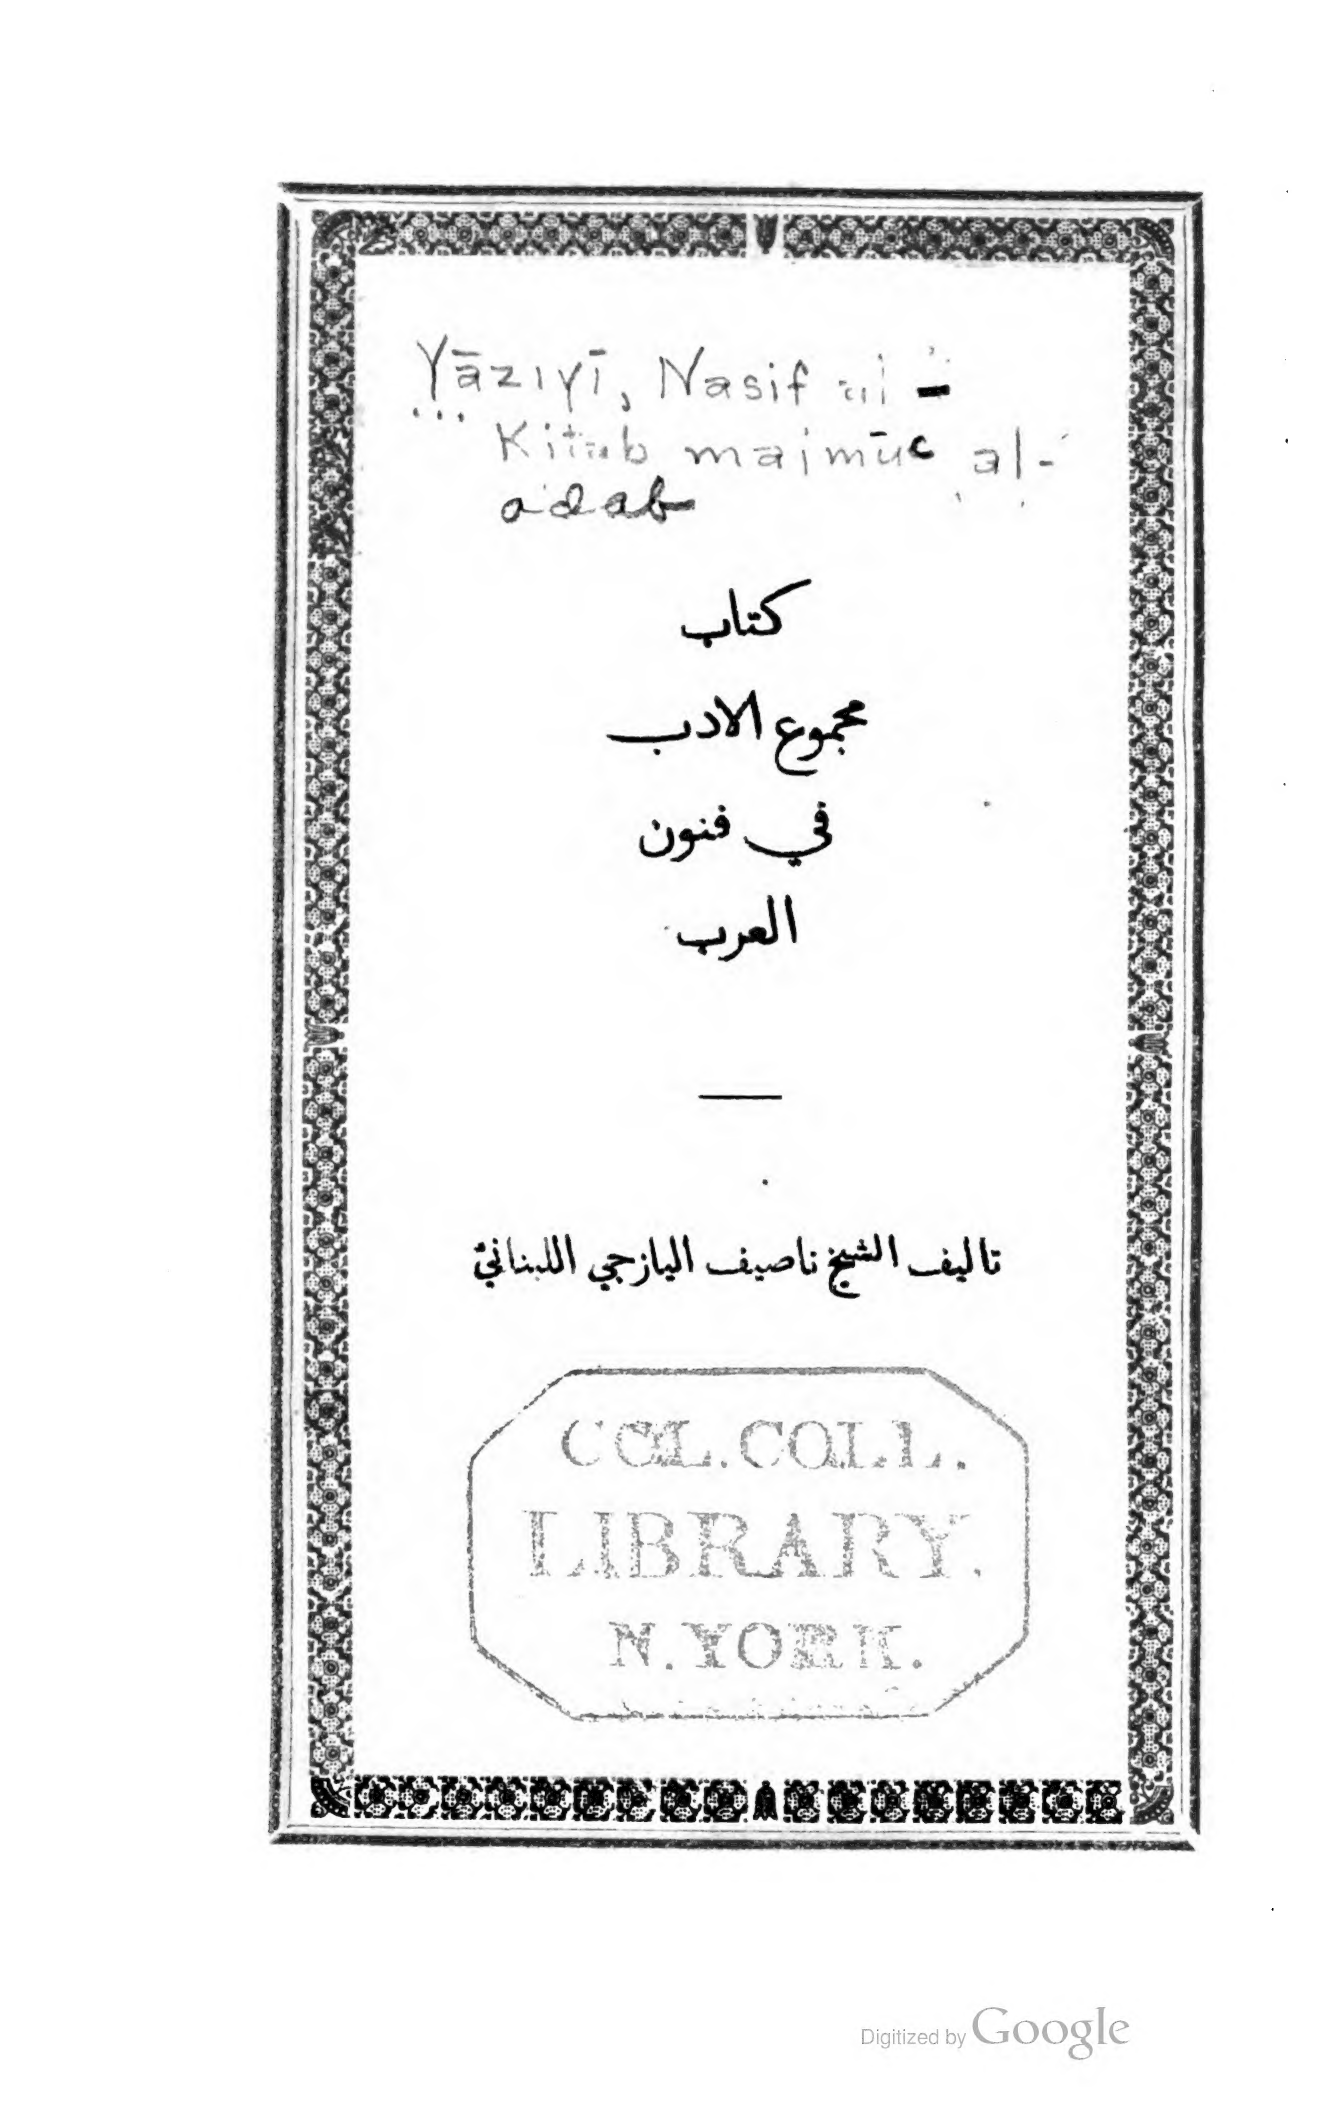 Yāziyī, Nasif al-
Kitab majmūc al-
adab
كتاب
مجموع الادب
في فنون
العرب
تاليف الشيخ ناصيف اليازجي اللبناني
COL. COLL.
LIBRARY.
N. YORK.
Digitized by Google